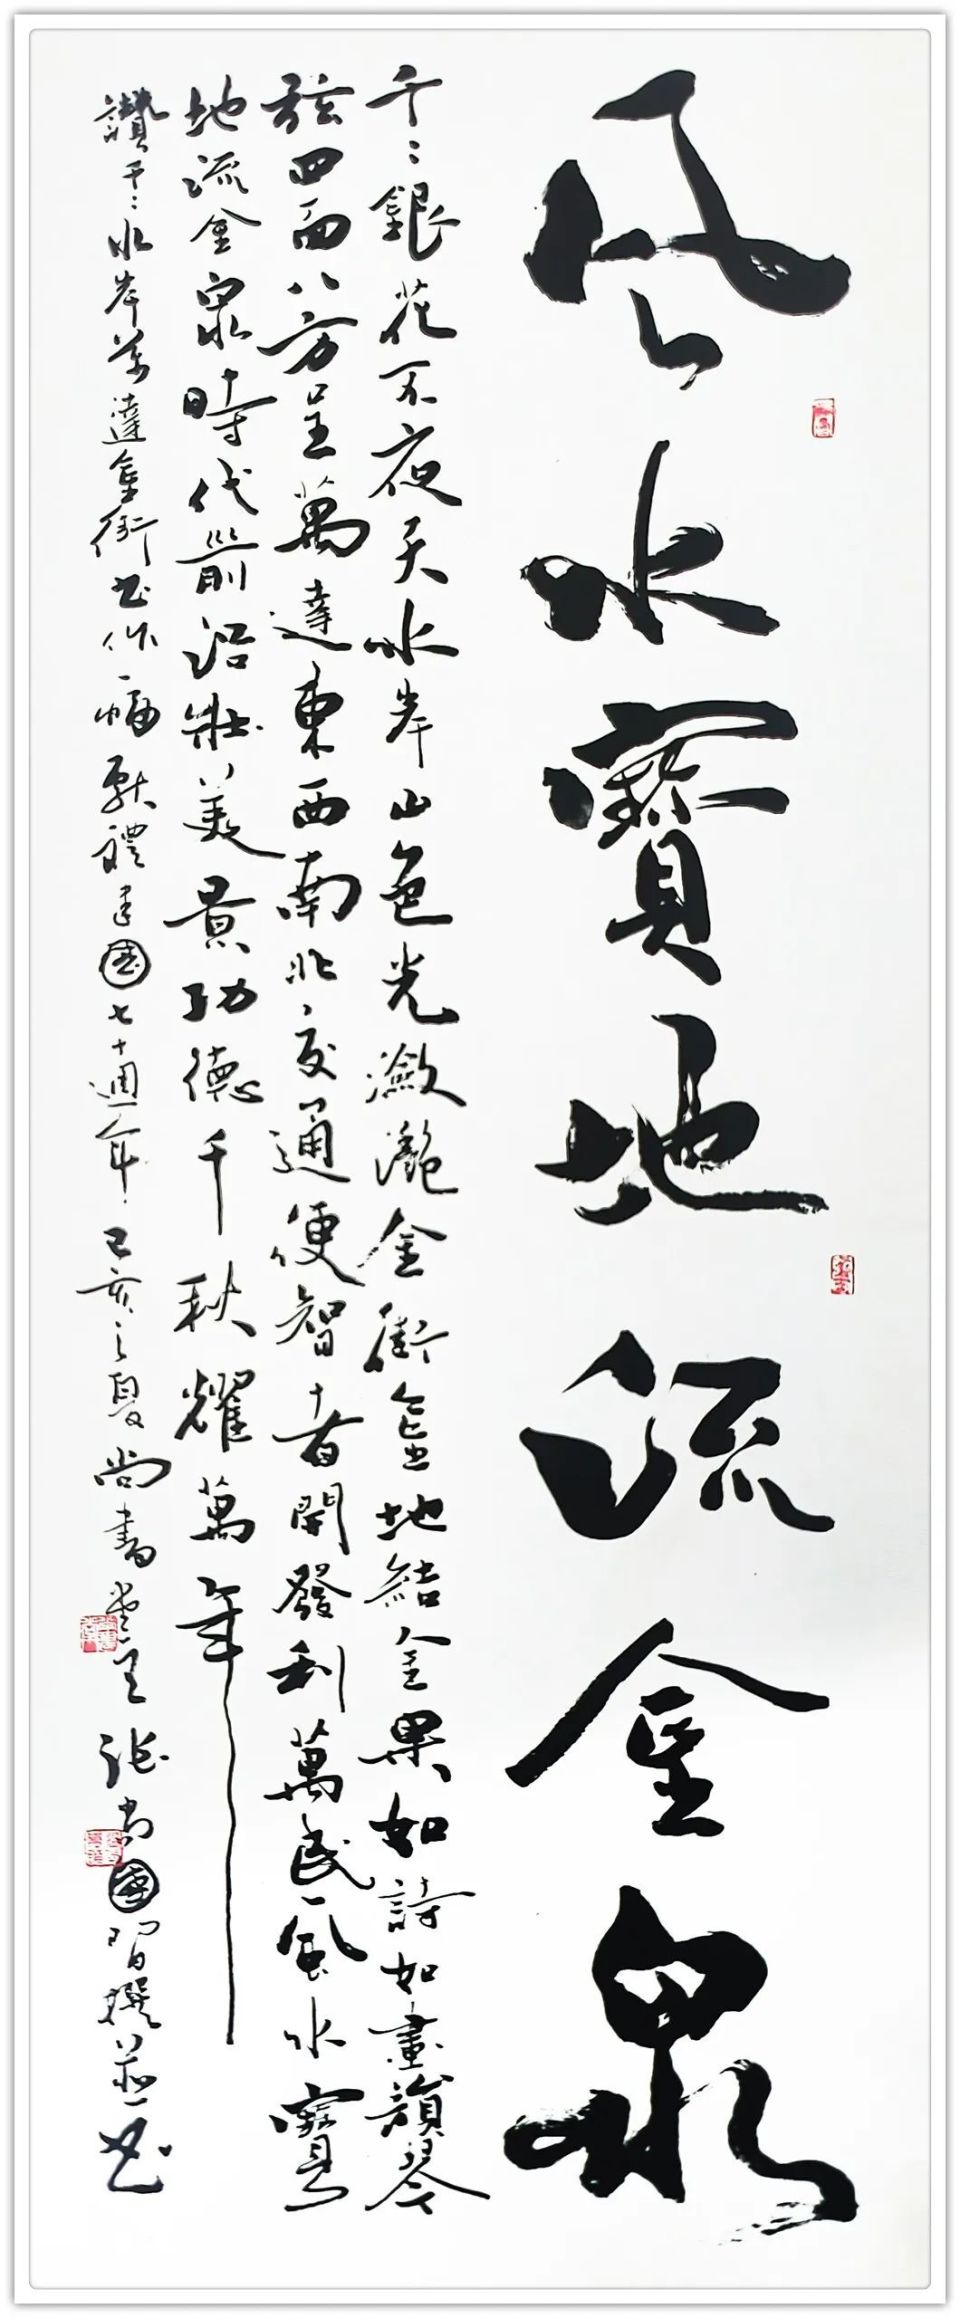 風水寶地流金泉
千〻銀花不夜天水岸山色光瀲灩金街金地結金果如詩如畫韻琴
弦四面八方呈萬達東西南北交通便智者開發利萬民風水寶
地流金泉時代前沿壯美景功德千秋耀萬年
讚千〻水岸萬達金街書作一幅獻禮建國七十週年己亥之夏尚書堂主張尚國習撰並書